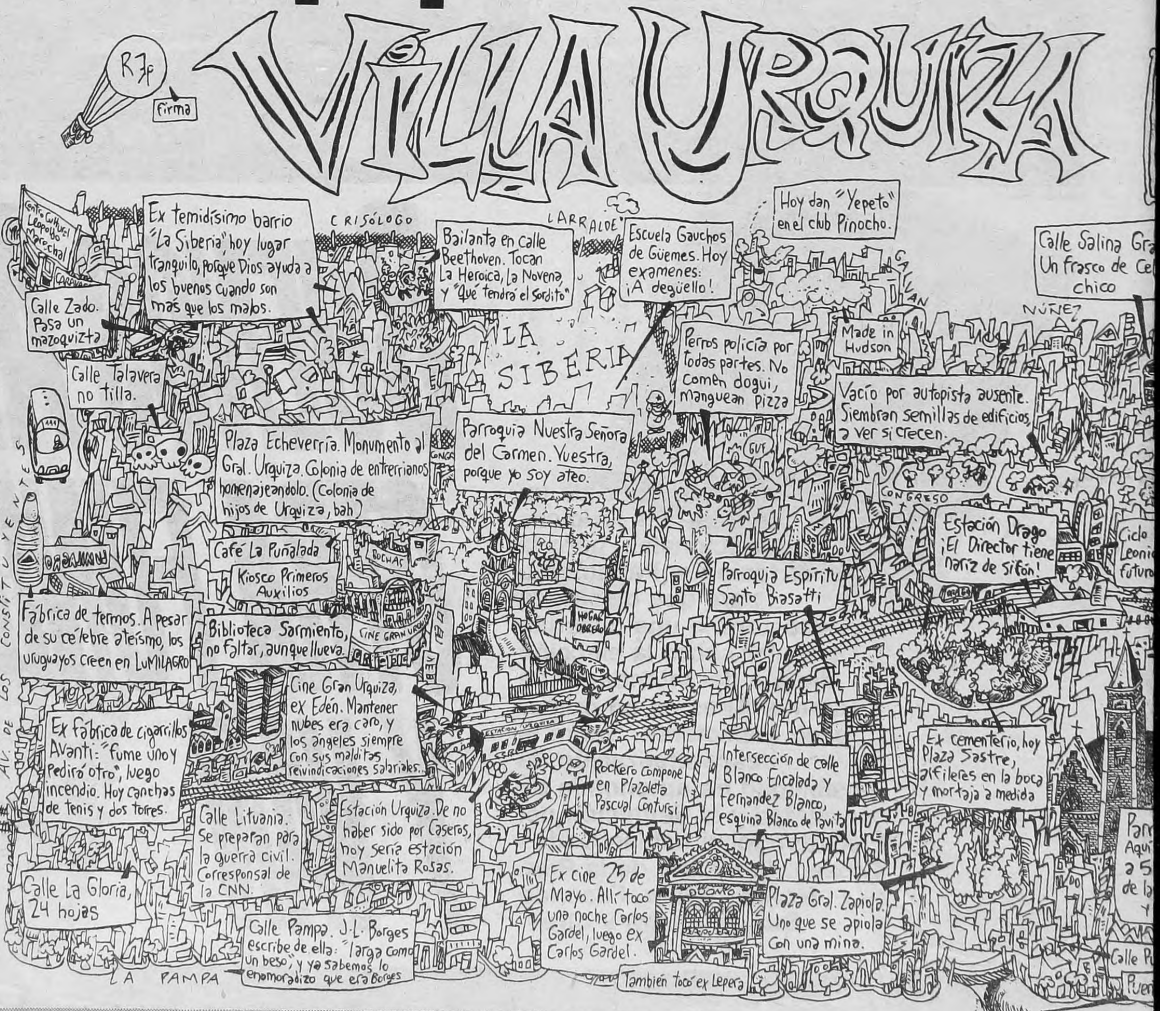 VILLA URQUIZA
R3p
firma
Centro Cultural
Leopoldo
Marechal
Ex temidísimo barrio
"La Siberia", hoy lugar
tranquilo, porque Dios ayuda a
los buenos cuando son
más que los malos.
CRISÓLOGO
LARRALDE
Bailanta en calle
Beethoven. Tocan
La Heroica, la Novena,
y "qué tendrá el sordito"
Escuela Gauchos
de Güemes. Hoy
examenes:
¡A degüello!
Hoy dan "Yepeto"
en el club Pinocho.
Calle Salina Gra
Un frasco de Ce
chico
Calle Zado.
Pasa un
mazoquizta
LA
SIBERIA
NÚÑEZ
Made in
Hudson
Perros policía por
todas partes. No
comen dogui,
manguean pizza
Calle Talavera
no Tilla.
Vacío por autopista ausente.
Siembran semillas de edificios
a ver si crecen.
Plaza Echeverría. Monumento al
Gral. Urquiza. Colonia de entrerrianos
homenajeandolo. (Colonia de
hijos de Urquiza, bah)
Parroquia Nuestra Señora
del Carmen. Vuestra,
porque yo soy ateo.
GUF
CONGRESO
Estación Drago
¡El Director tiene
nariz de sifón!
Ciclo
Leoni
futuro
AV. DE LOS CONSTITUYENTES
Café La Puñalada
Kiosco Primeros
Auxilios
Parroquia Espíritu
Santo Biasatti
HOGAR
OBRERO
CINE GRAN URQUIZA
Fábrica de termos. A pesar
de su célebre ateísmo, los
uruguayos creen en LUMILAGRO
Biblioteca Sarmiento,
no faltar, aunque llueva.
Cine Gran Urquiza,
ex Edén. Mantener
nubes era caro, y
los ángeles siempre
con sus malditas
reivindicaciones salariales.
ESTACION URQUIZA
Ex fábrica de cigarrillos
Avanti: "fume uno y
Pedirá otro", luego
incendio. Hoy canchas
de tenis y dos torres.
Rockero compone
en Plazoleta
Pascual Contursi
Intersección de calle
Blanco Encalada y
Fernandez Blanco,
esquina Blanco de Pavita
Ex cementerio, hoy
Plaza Sastre,
alfileres en la boca
y mortaja a medida
Calle Lituania.
Se preparan para
la guerra civil.
Corresponsal de
la CNN.
Estación Urquiza. De no
haber sido por Caseros,
hoy sería estación
Manuelita Rosas.
Parr
Aquí
a 5
de la
y
Calle La Gloria,
24 hojas
Ex cine 25 de
Mayo. Allí tocó
una noche Carlos
Gardel, luego ex
Carlos Gardel.
Plaza Gral. Zapiola.
Uno que se apiola
con una mina.
Calle Pampa. J.L. Borges
escribe de ella: "larga como
un beso", y ya sabemos lo
enamoradizo que era Borges
LA PAMPA
También tocó ex Lepera
Calle P
Puen